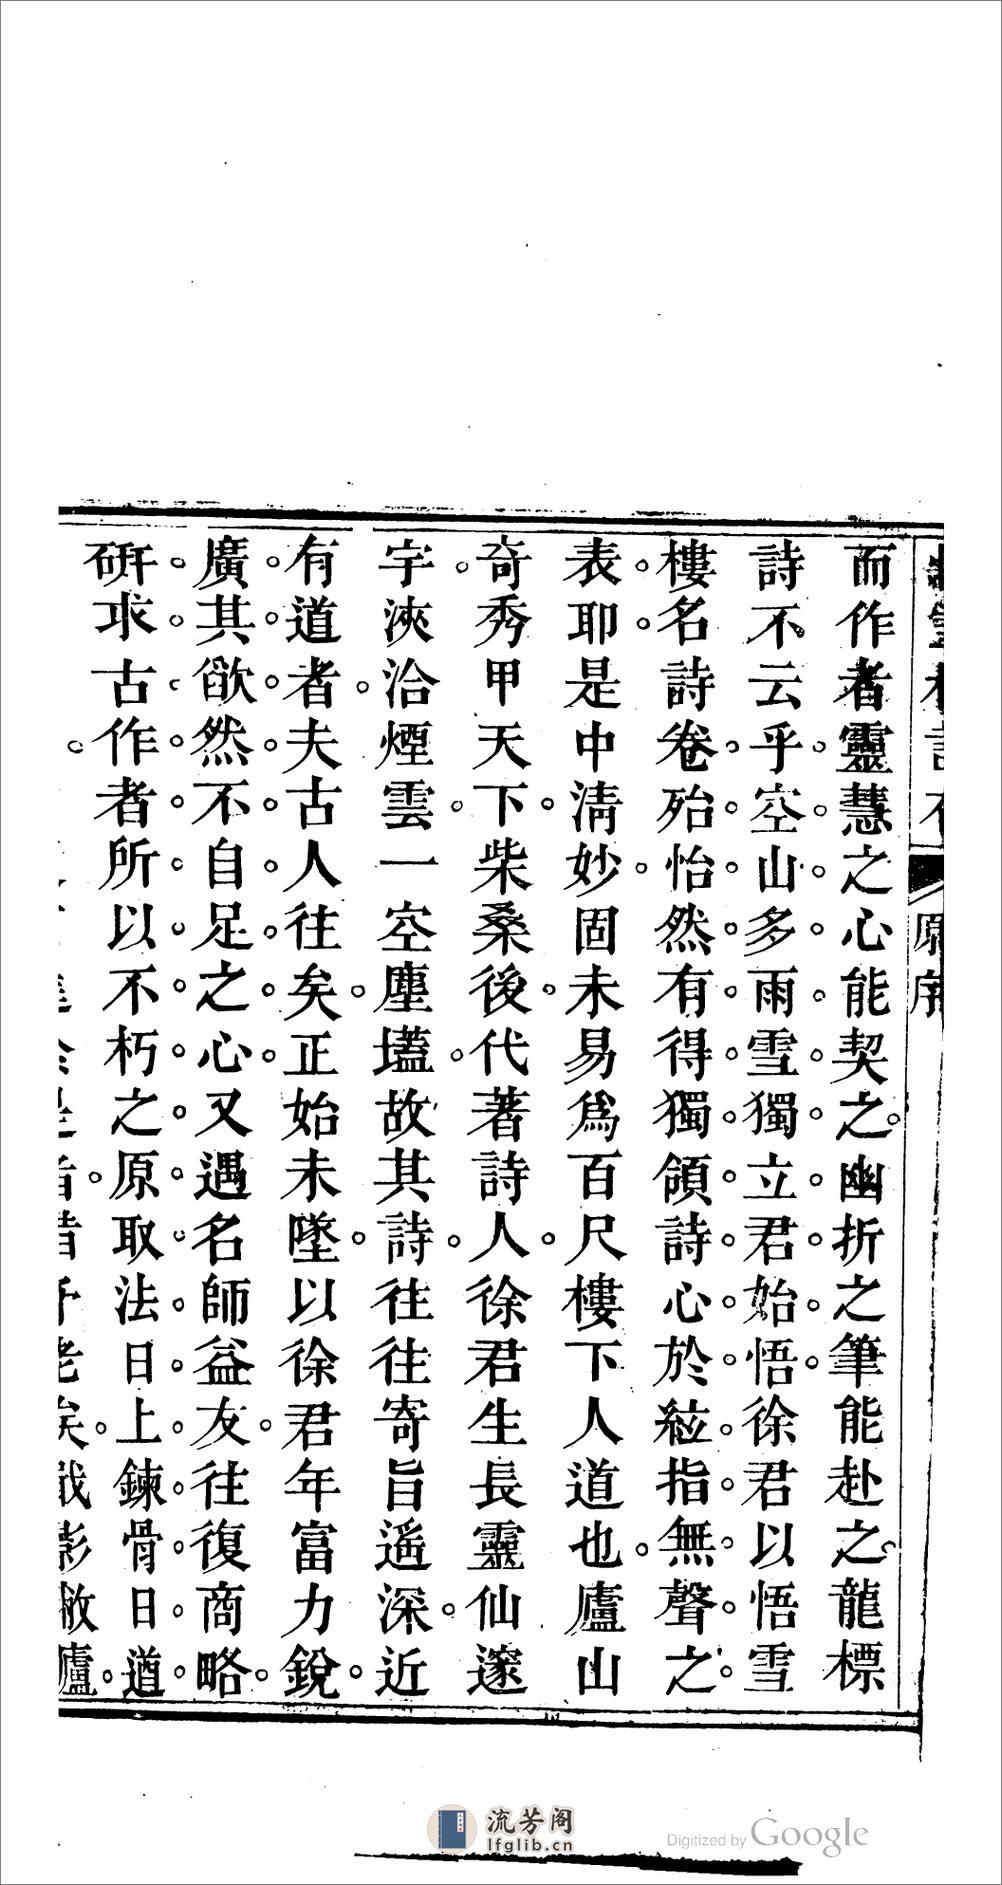 原序
而作者靈慧之心能契之幽折之筆能赴之龍標
詩不云乎空山多雨雪獨立君始悟徐君以悟雪
樓名詩卷殆怡然有得獨領詩心於絃指無聲之
表耶是中淸妙固未易爲百尺樓下人道也廬山
奇秀甲天下柴桑後代著詩人徐君生長靈仙邃
宇浹洽煙雲一空塵壒故其詩往往寄旨遙深近
有道者夫古人往矣正始未墜以徐君年富力銳
廣其欿然不自足之心又遇名師益友往復商略
硏求古作者所以不朽之原取法日上鍊骨日遒
流芳阁
lfglib.cn
Digitized by Google